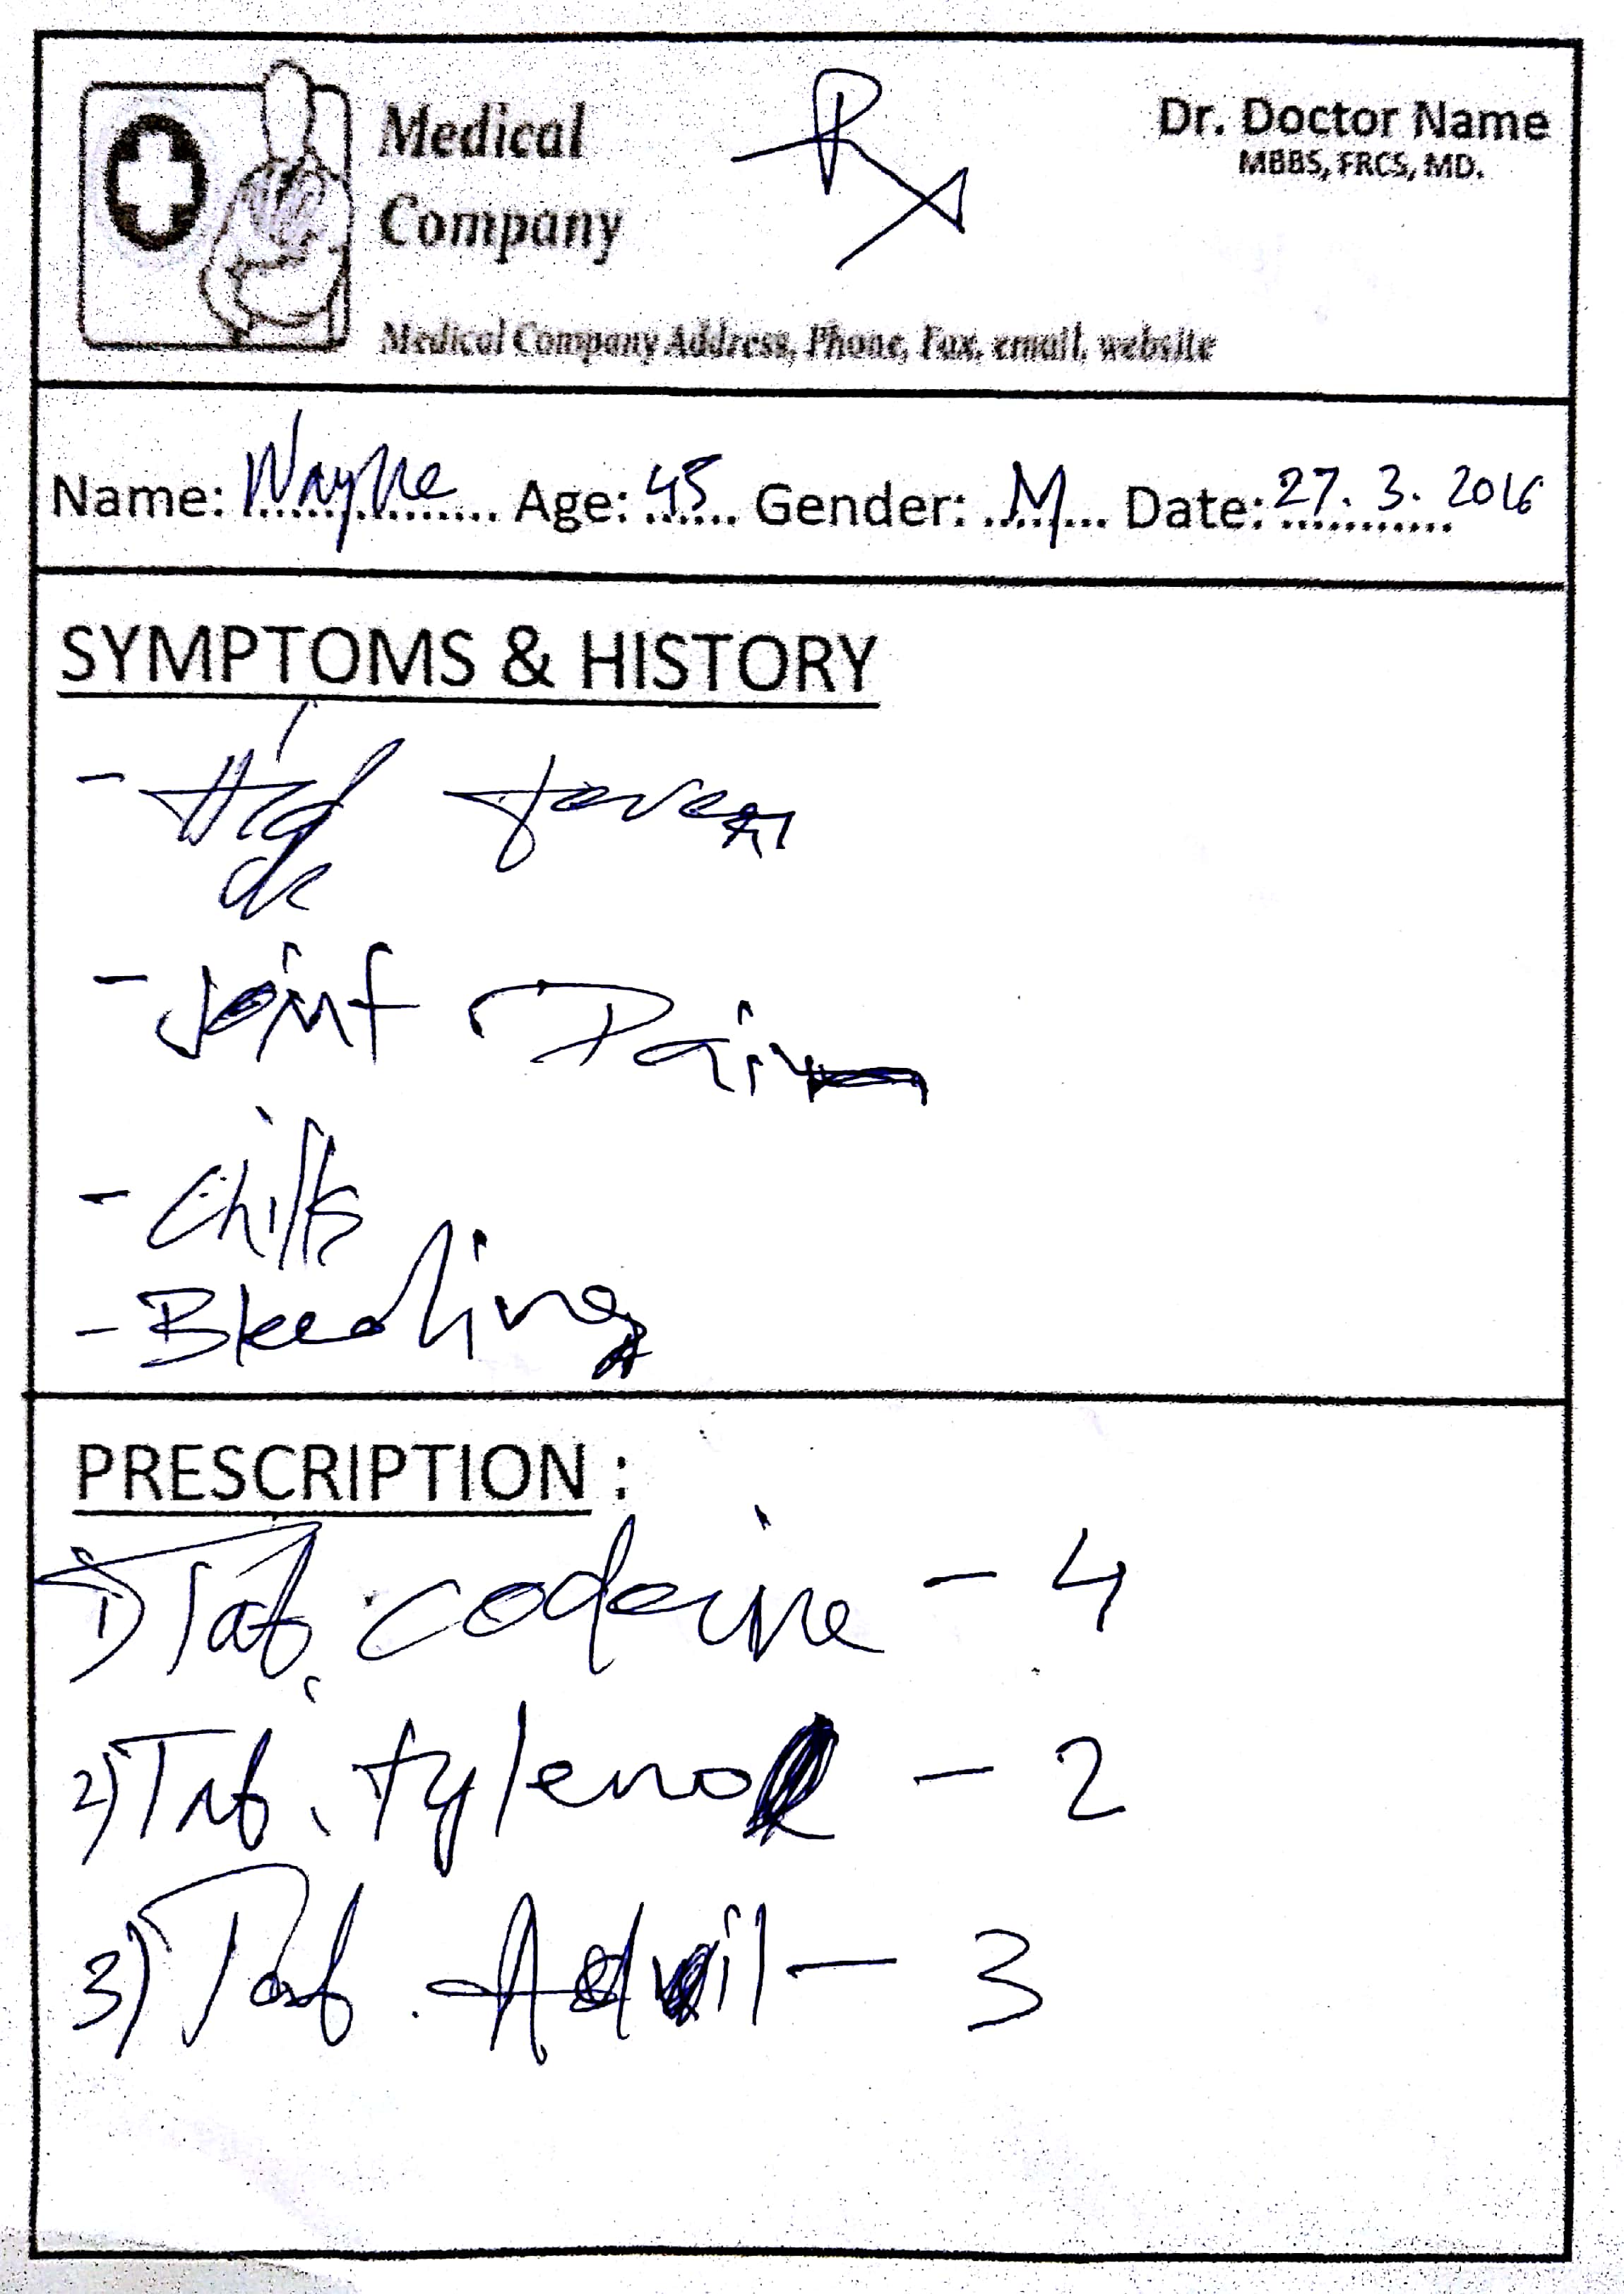 Medical
Company
Rx
Dr. Doctor Name
MBBS, FRCS, MD.
Medical Company Address, Phone, Fax, email, website
Name: Wayne Age: 45 Gender: M Date: 27. 3. 2016
SYMPTOMS & HISTORY
- fever
- Joint Pain
- Chills
- Bleeding
PRESCRIPTION :
1) Tab. codeine - 4
2) Tab. tylenol - 2
3) Tab. Advil - 3